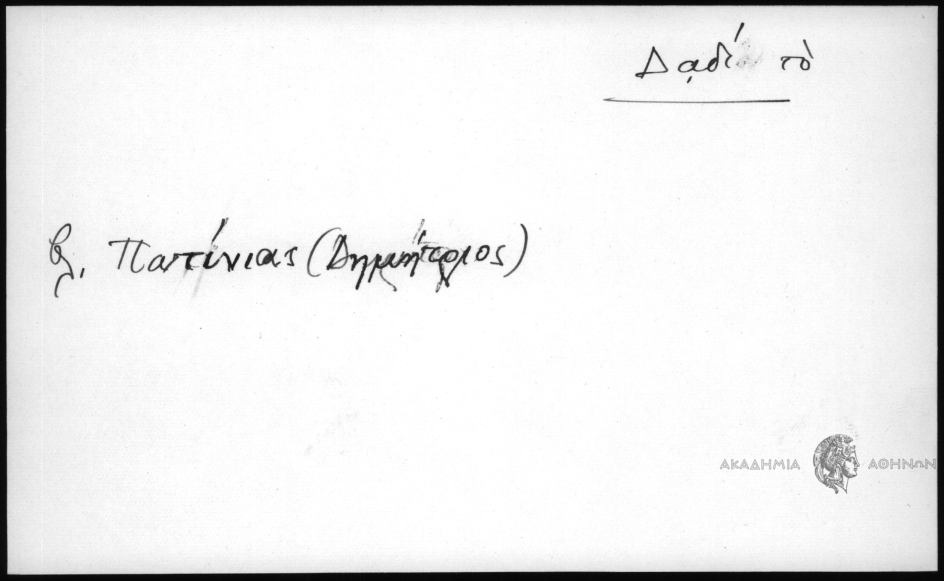 Δᾳδί τὸ
βλ. Πατίνιας (Δημήτριος)
ΑΚΑΔΗΜΙΑ ΑΘΗΝΩΝ